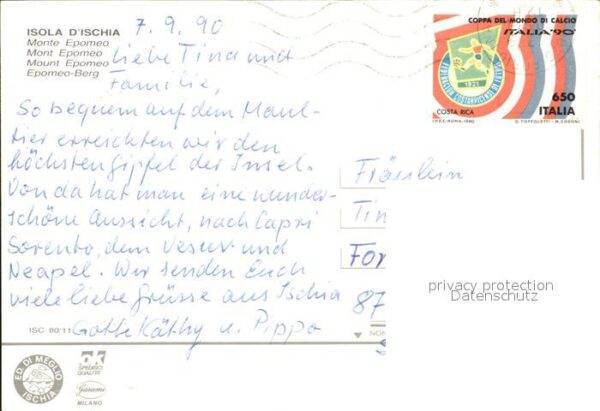 ISOLA D'ISCHIA
Monte Epomeo
Mont Epomeo
Mount Epomeo
Epomeo-Berg
7.9.90
Liebe Tina und
Familie,
So bequem auf dem Maul-
tier erreichten wir den
höchsten Gipfel der Insel.
Von da hat man eine wunder-
schöne Aussicht, nach Capri
Sorento, dem Vesuv und
Neapel. Wir senden Euch
viele liebe Grüsse aus Ischia
Gotte Käthy u. Pippo
COPPA DEL MONDO DI CALCIO
ITALIA '90
1921
COSTA RICA
650
ITALIA
I.P.Z.S.-ROMA-1990
Fräulein
Tin
For
87
privacy protection
Datenschutz
ISC 80/11
ED. DI MEGLIO
ISCHIA
OK
SPEDISCI
QUALITÀ
Garami
MILANO